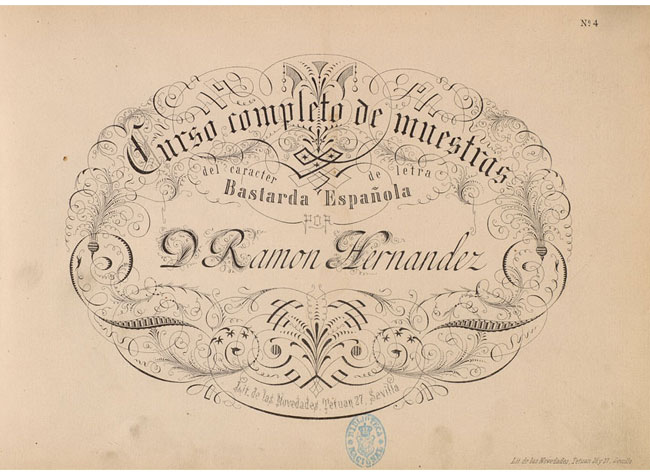 Nº 4
Curso completo de muestras
del caracter de letra
Bastarda Española
POR
D Ramon Hernandez
Lit. de las Novedades, Tetuan 27, Sevilla
Lit. de las Novedades, Tetuan